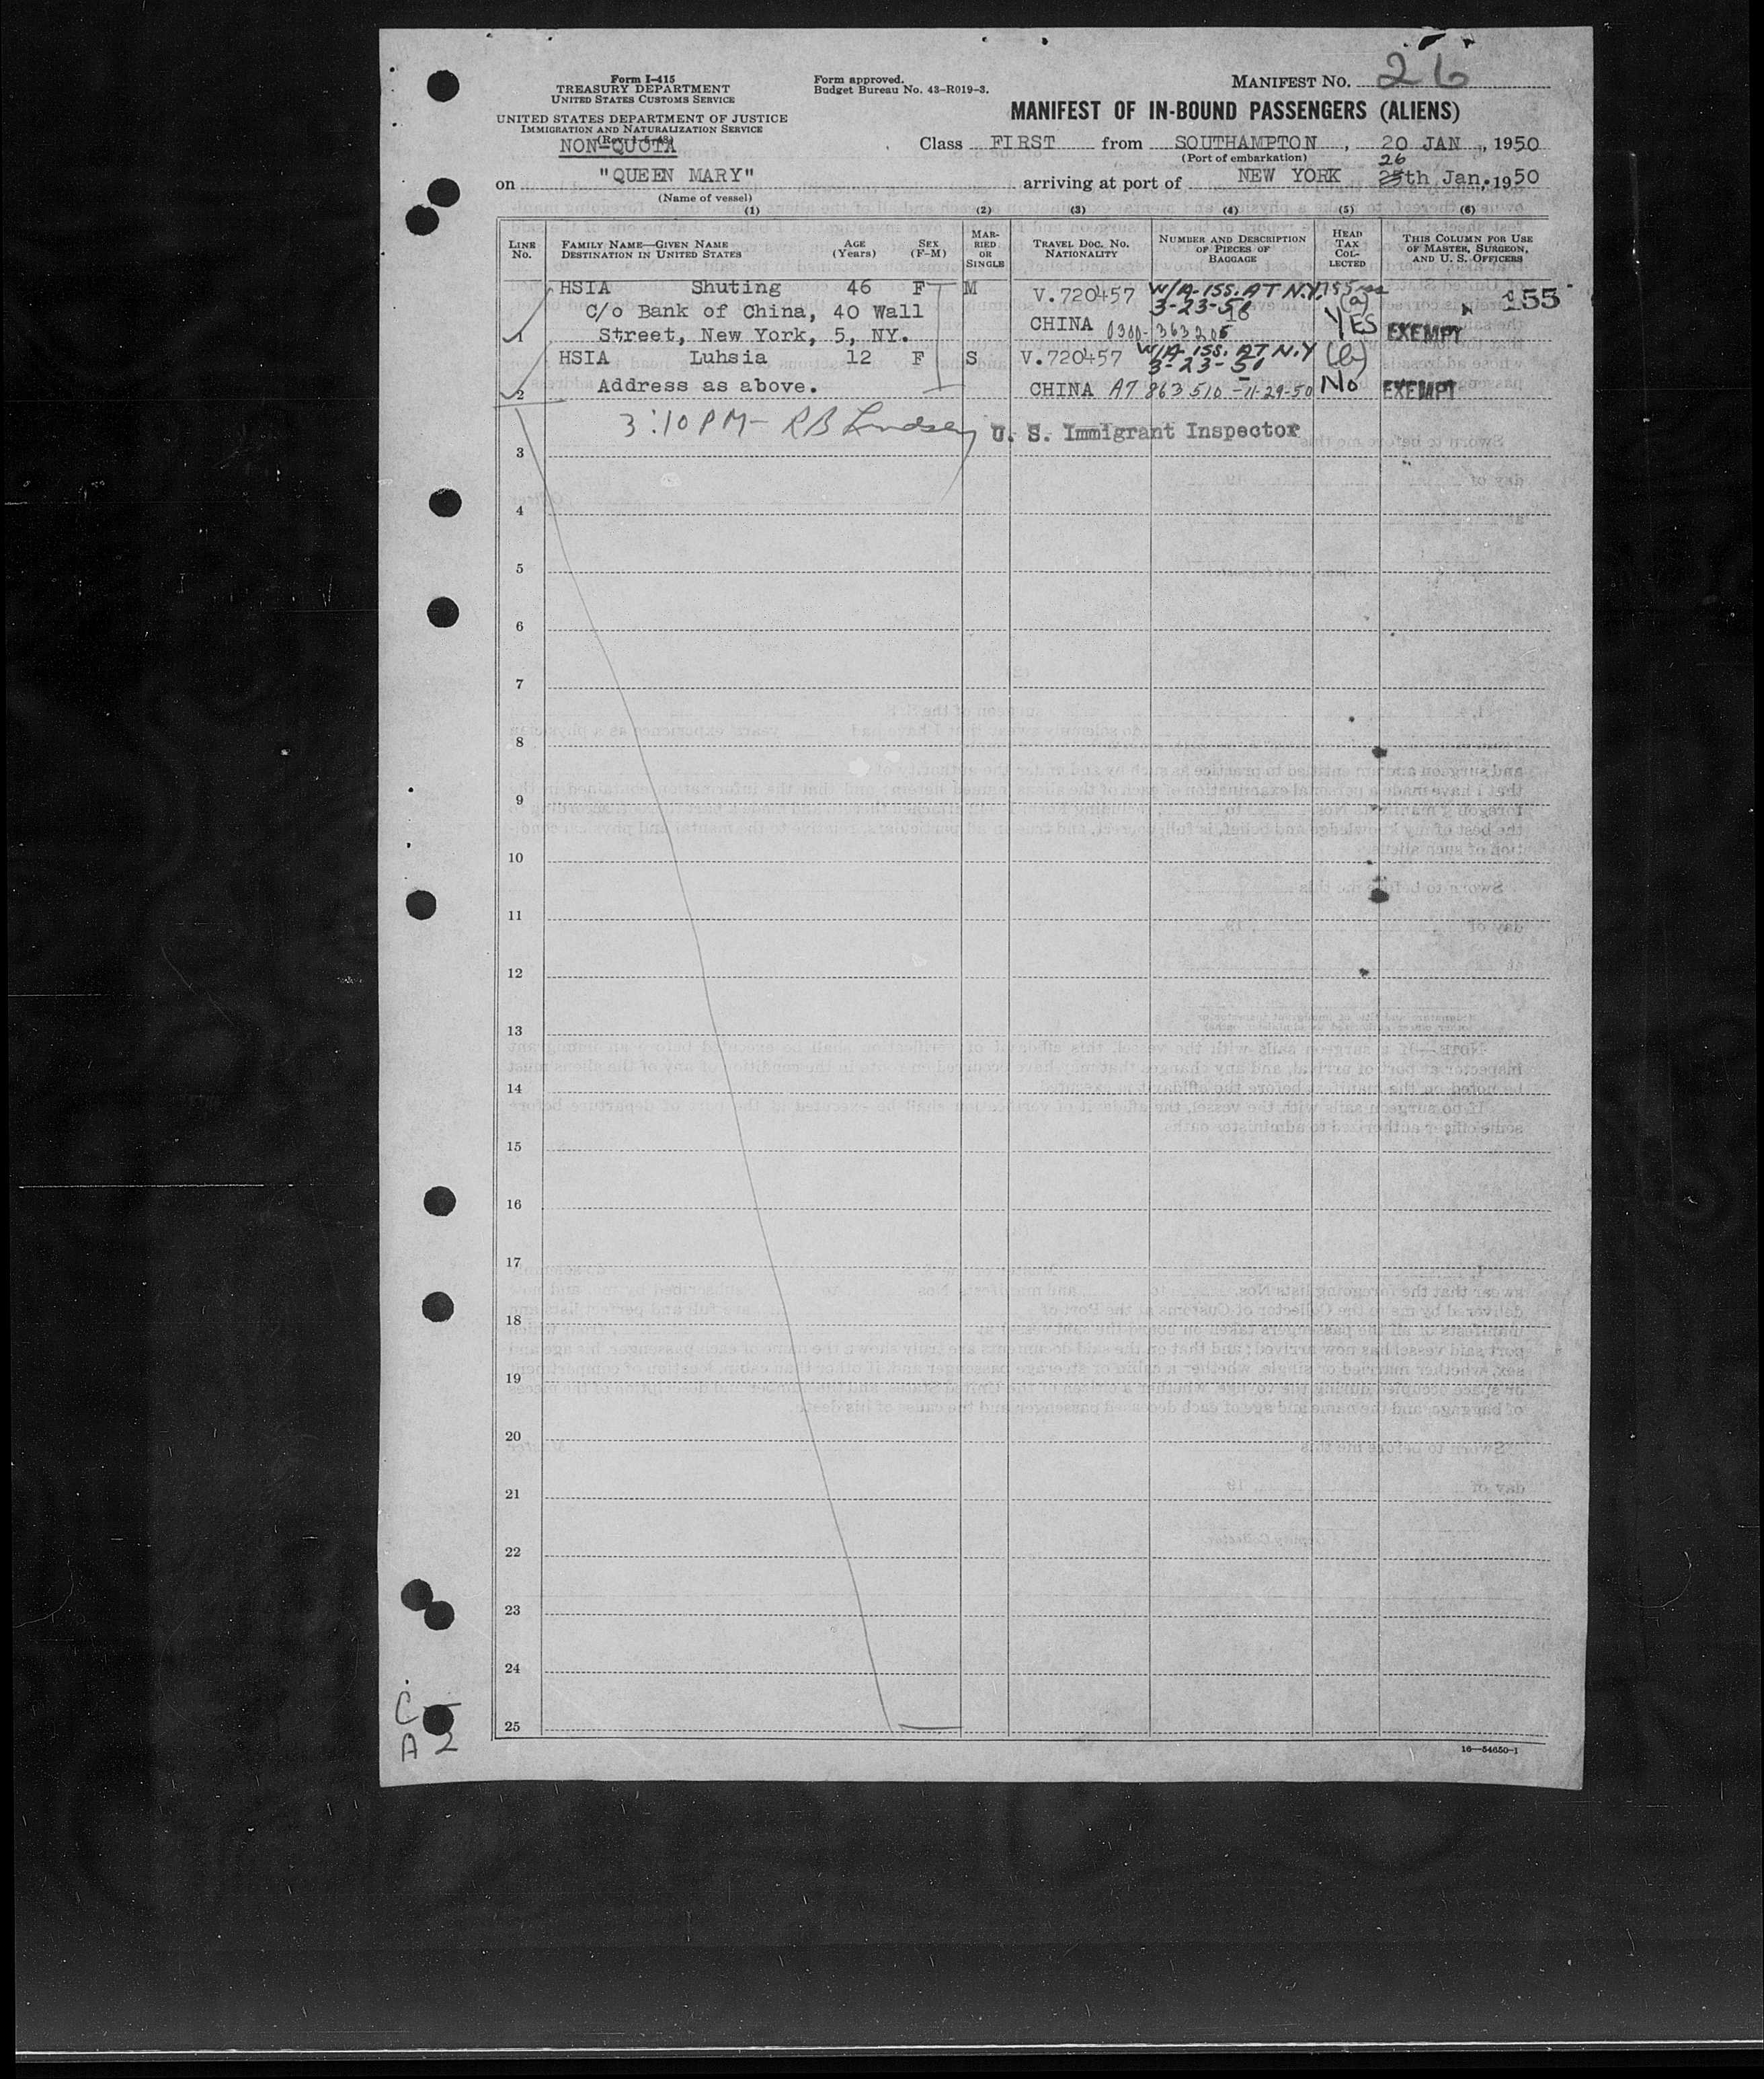 Form I-415
TREASURY DEPARTMENT
UNITED STATES CUSTOMS SERVICE
UNITED STATES DEPARTMENT OF JUSTICE
IMMIGRATION AND NATURALIZATION SERVICE
(Rev. 1-5-48)
NON-QUOTA
Form approved.
Budget Bureau No. 43-R019-3.
MANIFEST NO. 26
MANIFEST OF IN-BOUND PASSENGERS (ALIENS)
Class FIRST from SOUTHAMPTON, 20 JAN, 1950
(Port of embarkation)
26
on "QUEEN MARY" arriving at port of NEW YORK 25th Jan. 1950
(Name of vessel)
(1) (2) (3) (4) (5) (6)
LINE No. FAMILY NAME—GIVEN NAME DESTINATION IN UNITED STATES AGE (Years) SEX (F-M) MARRIED OR SINGLE TRAVEL DOC. No. NATIONALITY NUMBER AND DESCRIPTION OF PIECES OF BAGGAGE HEAD TAX COLLECTED THIS COLUMN FOR USE OF MASTER, SURGEON, AND U. S. OFFICERS
HSIA Shuting 46 F M V.720457 W/A-ISS. AT N.Y. 155
C/o Bank of China, 40 Wall 3-23-50 (a)
1 Street, New York, 5, NY. CHINA 0300-363205 YES EXEMPT
HSIA Luhsia 12 F S V.720457 W/A ISS. AT N.Y (b)
3-23-50
2 Address as above. CHINA A7 863 510 -11-29-50 No EXEMPT
3:10 PM- RB Lindsey U. S. Immigrant Inspector
3
4
5
6
7
8
9
10
11
12
13
14
15
16
17
18
19
20
21
22
23
24
25
C
A 2
16—54650-1